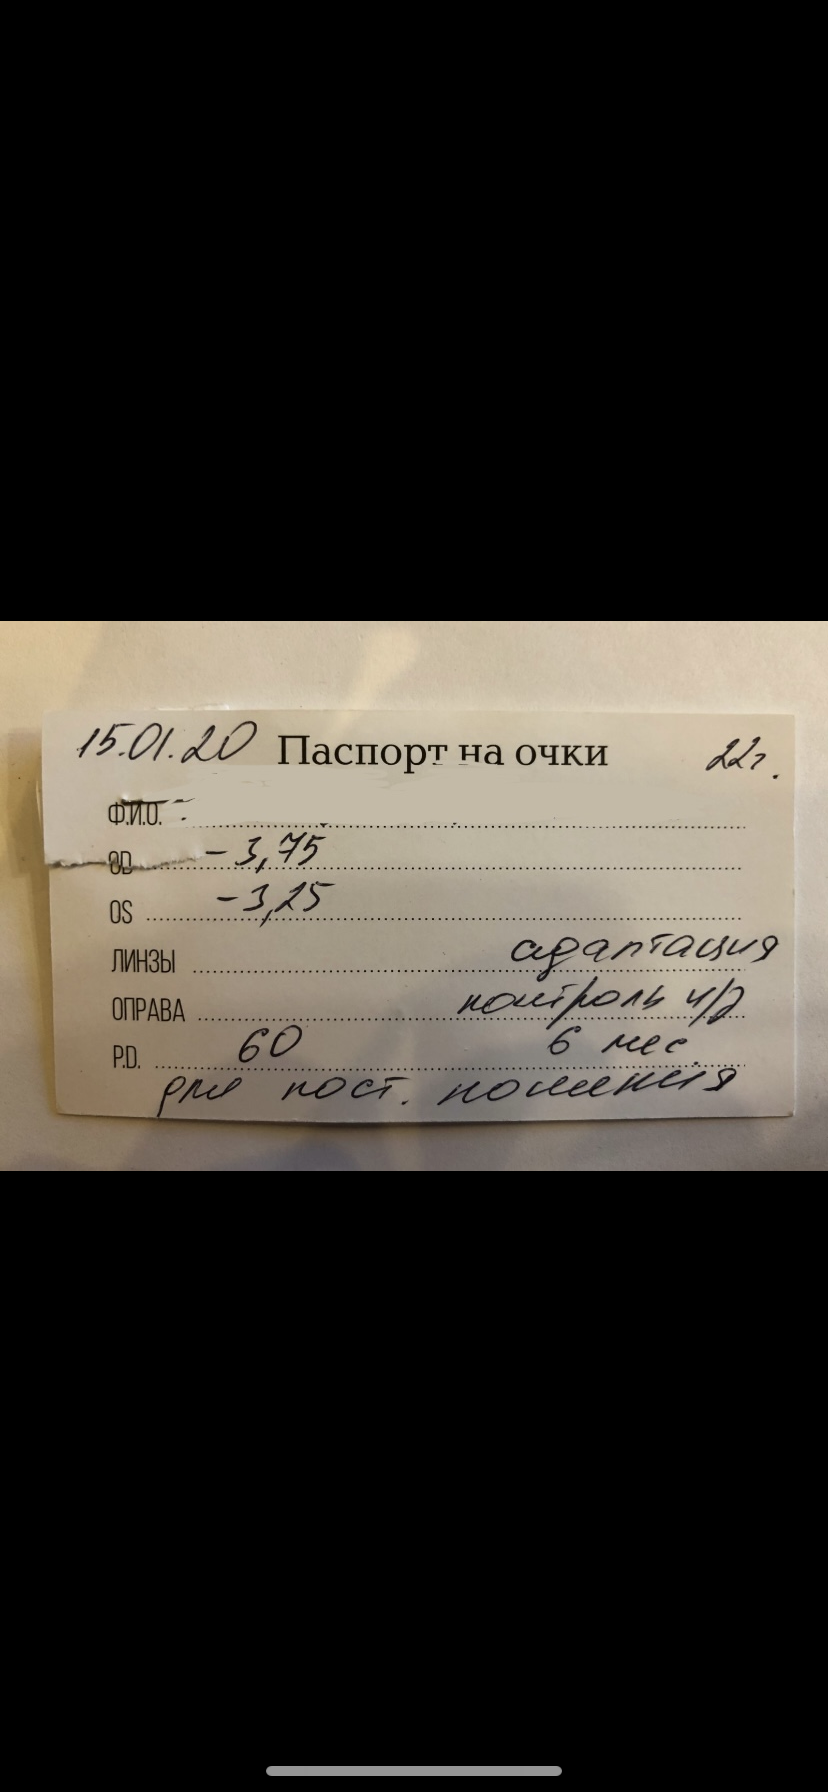 15.01.20 Паспорт на очки 22г.
Ф.И.О.
OD -3,75
OS -3,25
ЛИНЗЫ адаптация
ОПРАВА контроль ч/з
P.D. 60 6 мес
для пост. ношения